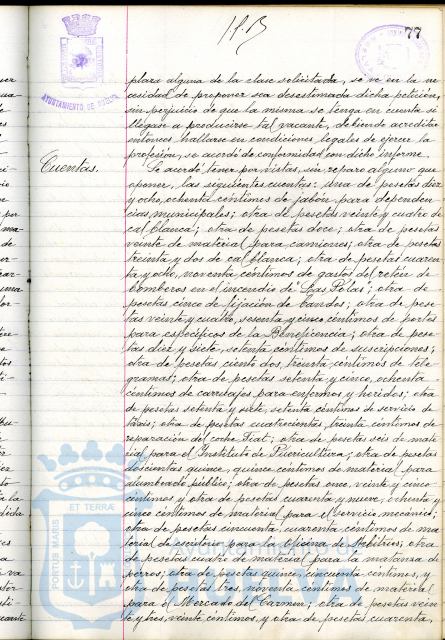 77
AYUNTAMIENTO DE HUELVA
plaza alguna de la clase solicitada, se ve en la ne
cesidad de proponer sea desestimada dicha peticion,
sin perjuicio de que la misma se tenga en cuenta si
llegase a producirse tal vacante, debiendo acreditar
entonces hallarse en condiciones legales de ejercer la
profesión, se acordó de conformidad con dicho informe.
Cuentas.
Se acordó tener por vistas, sin reparo alguno que
oponer, las siguientes cuentas: una de pesetas diez
y ocho, ochenta céntimos de jabón para dependen
cias municipales; otra de pesetas veinte y cuatro de
cal blanca; otra de pesetas doce; otra de pesetas
veinte de material para camiones; otra de pesetas
treinta y dos de cal blanca; otra de pesetas cuaren
ta y ocho, noventa céntimos de gastos del retén de
Bomberos en el incendio de "Las Polas"; otra de
pesetas cinco de fijación de bandos; otra de pese
tas veinte y cuatro, sesenta y cinco céntimos de portes
para específicos de la Beneficencia; otra de pese
tas diez y siete, setenta céntimos de suscripciones;
otra de pesetas ciento dos, treinta céntimos de tele
gramas; otra de pesetas setenta y cinco, ochenta
céntimos de carruajes para enfermos y heridos; otra
de pesetas setenta y siete, setenta céntimos de servicio de
taxis; otra de pesetas cuatrocientas, treinta céntimos de
reparación del coche Fiat; otra de pesetas seis de mate
rial para el Instituto de Puericultura; otra de pesetas
doscientas quince, quince céntimos de material para
alumbrado público; otra de pesetas once, veinte y cinco
céntimos y otra de pesetas cuarenta y nueve, ochenta y
cinco céntimos de material para el servicio mecánico;
otra de pesetas cincuenta, cuarenta céntimos de ma
terial de escritorio para la oficina de Arbitrios; otra
de pesetas cuatro de material para la matanza de
perros; otra de pesetas quince, cincuenta céntimos, y
otra de pesetas tres, noventa céntimos de material
para el Mercado del Carmen; otra de pesetas vein
te y tres, veinte céntimos, otra de pesetas cuarenta,
PORTUS MARIS
ET TERRAE
Ayuntamiento de